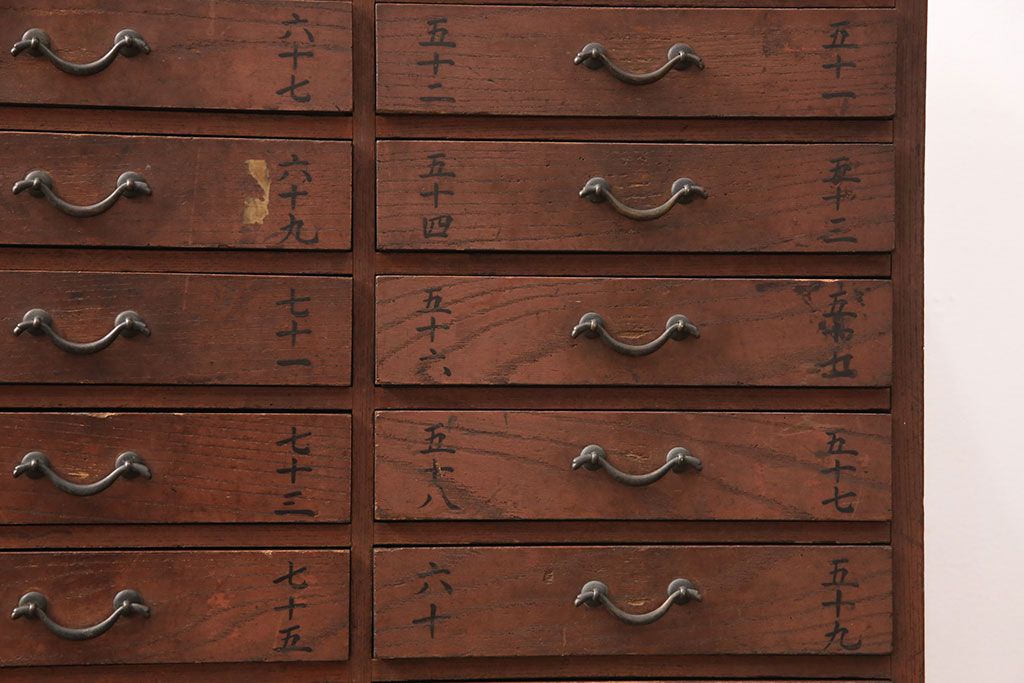 五十一
五十二
六十七
五十三
五十四
六十九
五十五
五十六
七十一
五十七
五十八
七十三
五十九
六十
七十五